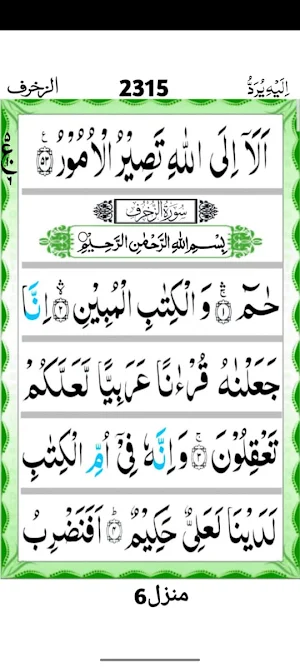 الزخرف 2315 اِلَیْهِ یُرَدُّ
اَلَاۤ اِلَی اللّٰهِ تَصِیْرُ الْاُمُوْرُ ﴿۵۳﴾
سُوْرَةُ الزُّخْرُفِ
بِسْمِ اللّٰهِ الرَّحْمٰنِ الرَّحِیْمِ
حٰمٓ ﴿۱﴾ وَ الْكِتٰبِ الْمُبِیْنِ ﴿۲﴾ اِنَّا
جَعَلْنٰهُ قُرْءٰنًا عَرَبِیًّا لَّعَلَّكُمْ
تَعْقِلُوْنَ ﴿۳﴾ وَ اِنَّهٗ فِیْۤ اُمِّ الْكِتٰبِ
لَدَیْنَا لَعَلِیٌّ حَكِیْمٌ ﴿۴﴾ اَفَنَضْرِبُ
منزل6